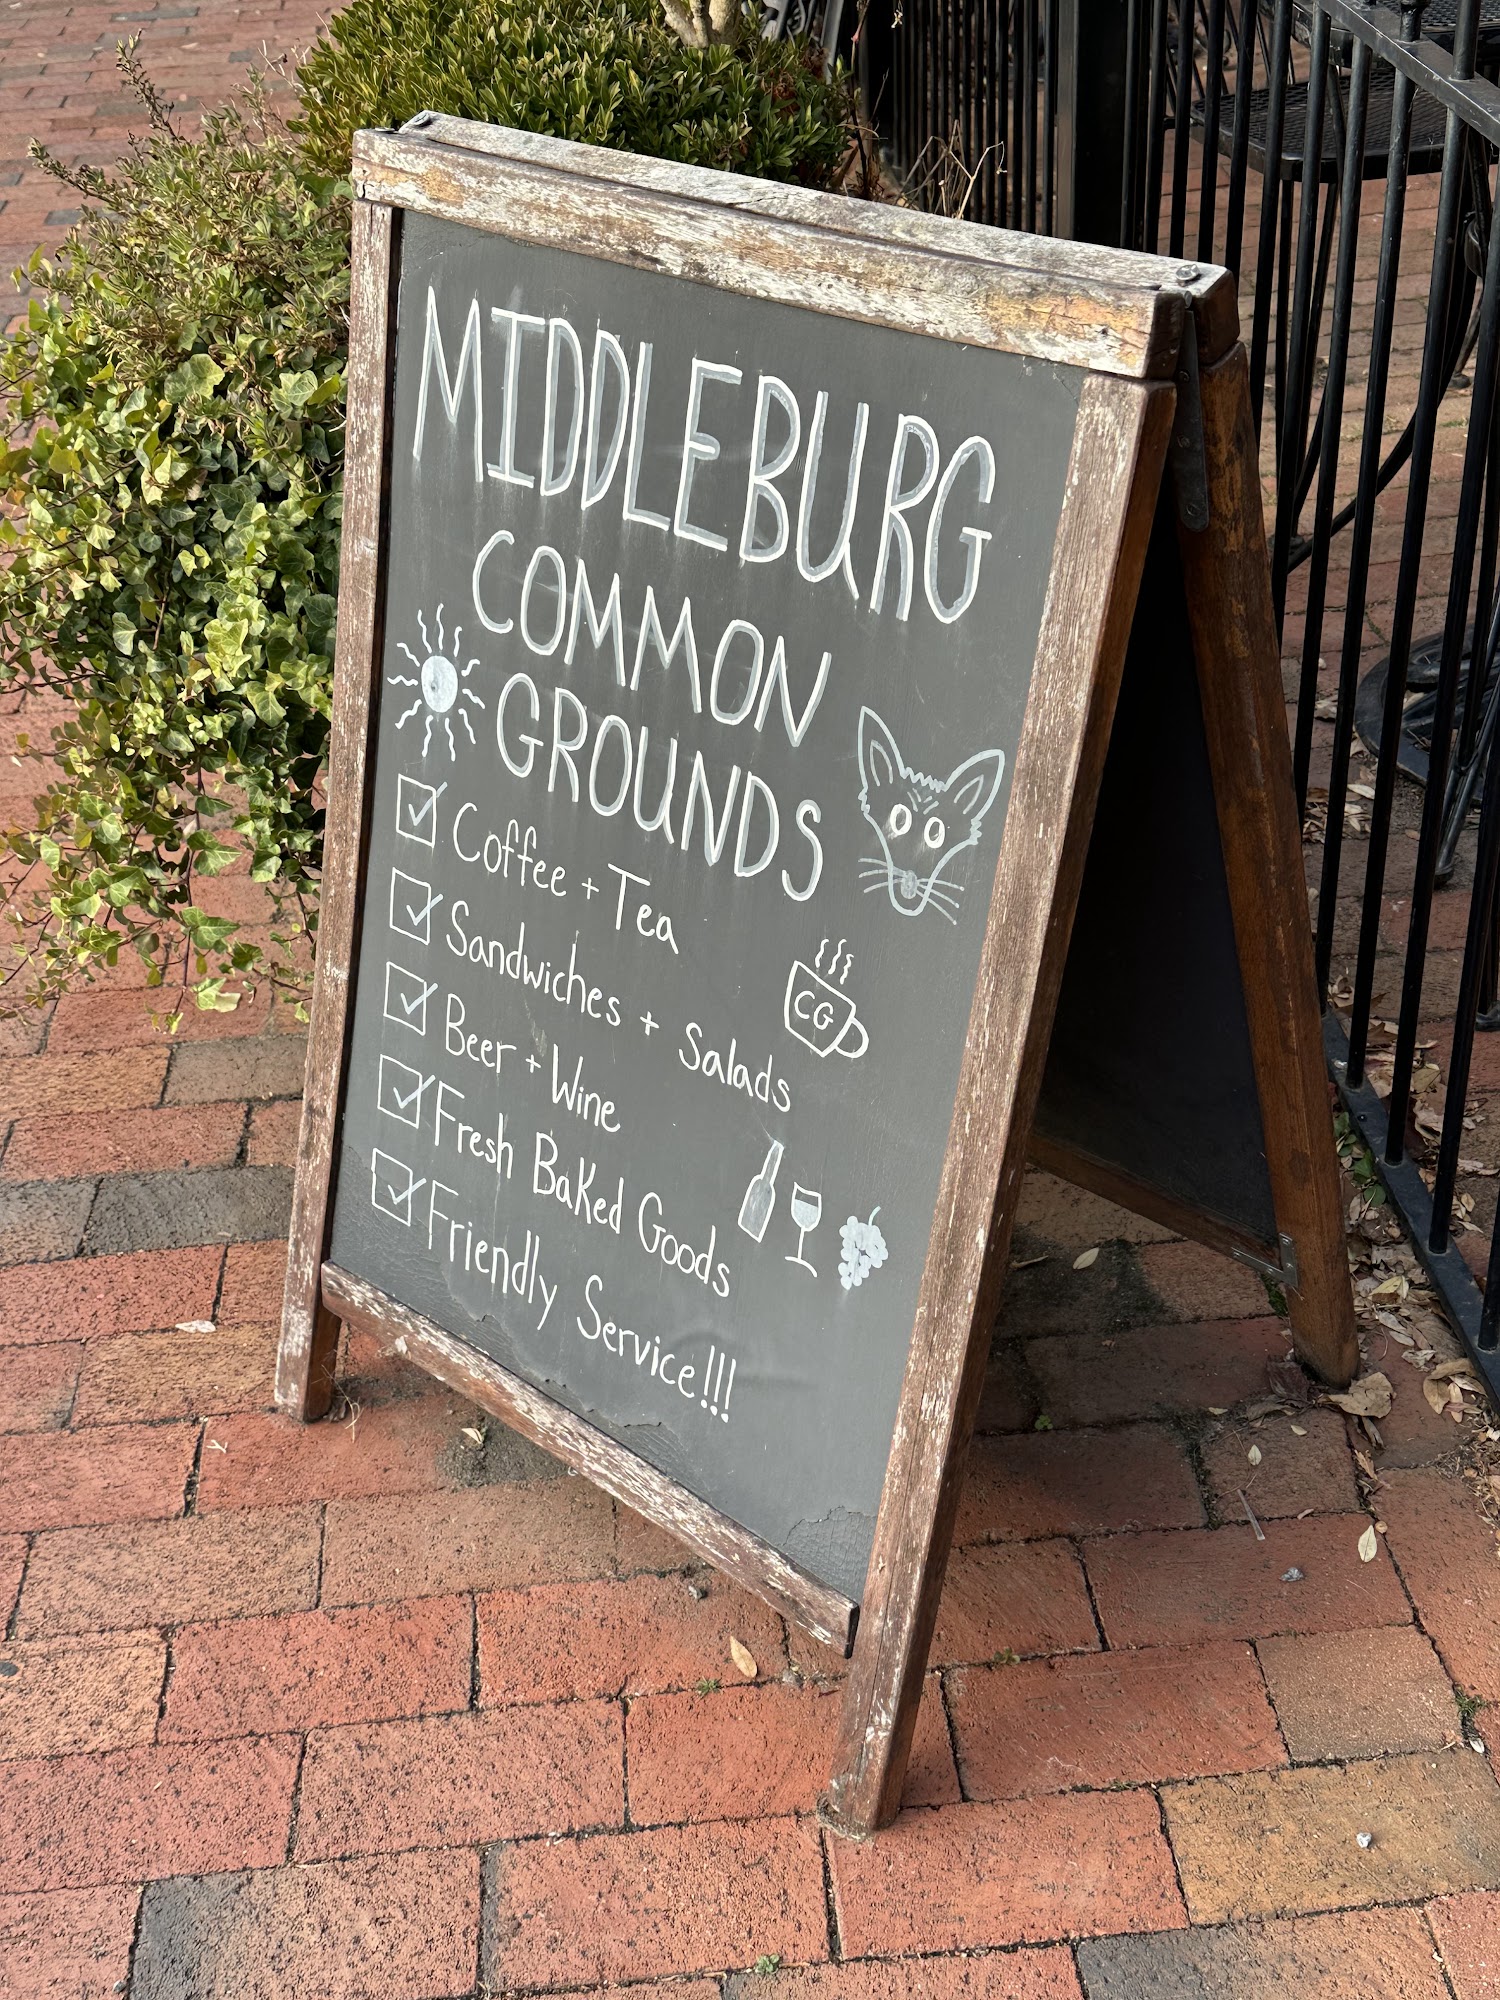 MIDDLEBURG
COMMON
GROUNDS
Coffee + Tea
Sandwiches + Salads
CG
Beer + Wine
Fresh Baked Goods
Friendly Service!!!